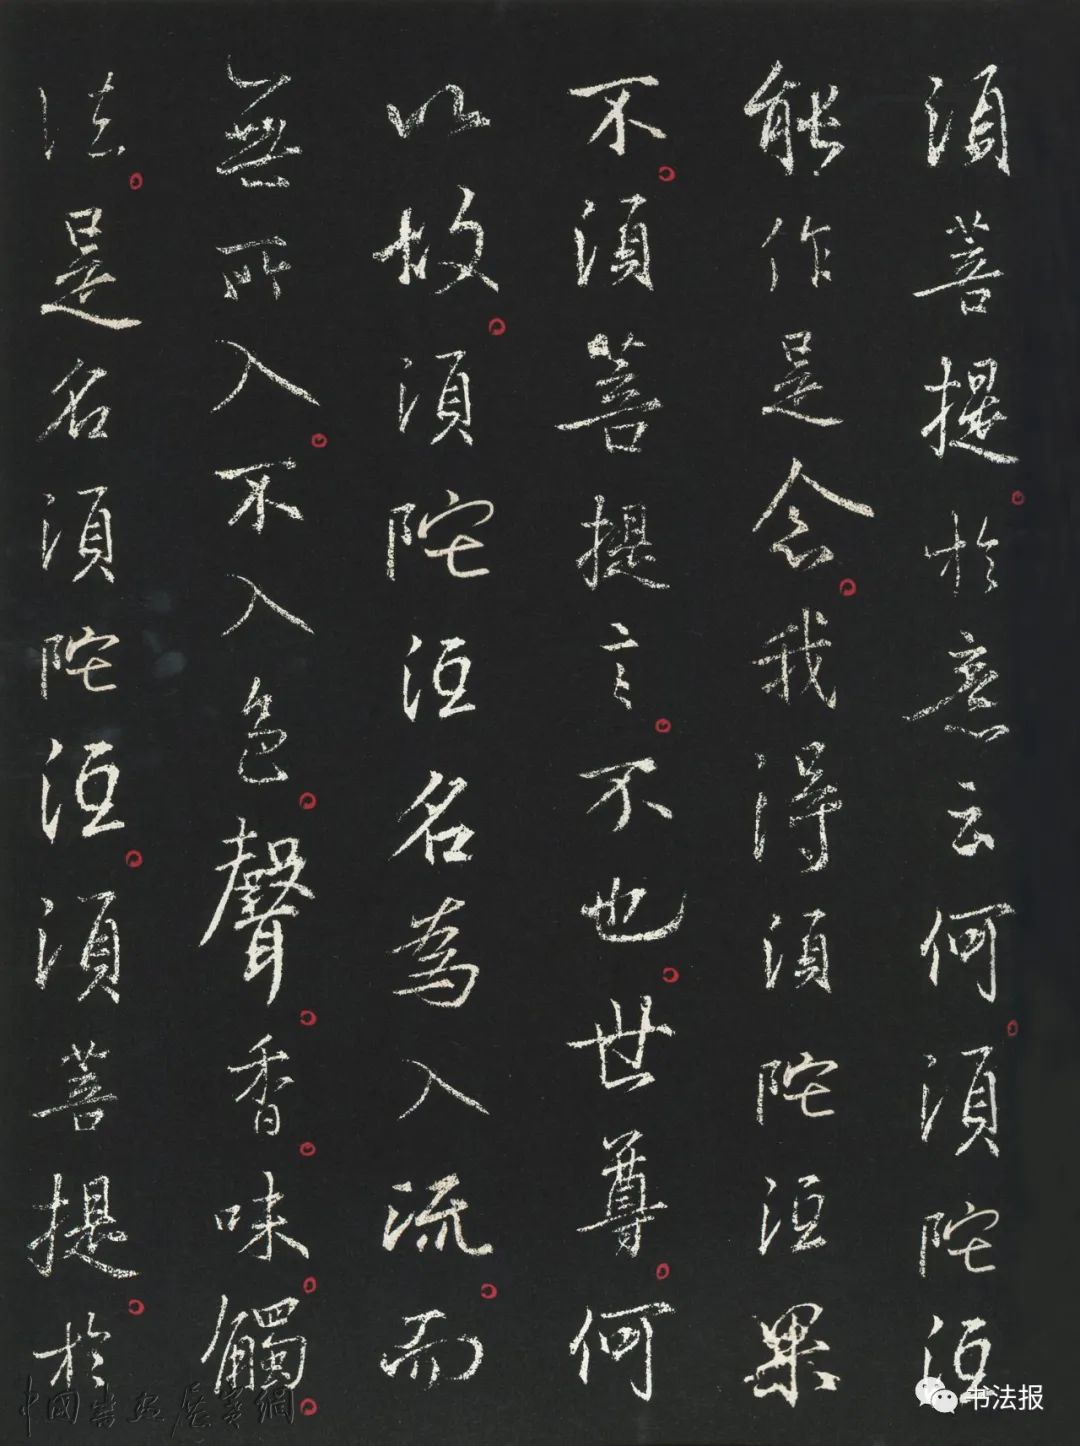 須菩提。於意云何。須陀洹
能作是念。我得須陀洹果
不。須菩提言。不也。世尊。何
以故。須陀洹名為入流。而
無所入。不入色。聲。香。味。觸。
法。是名須陀洹。須菩提。於
中國書畫展賽網
书法报